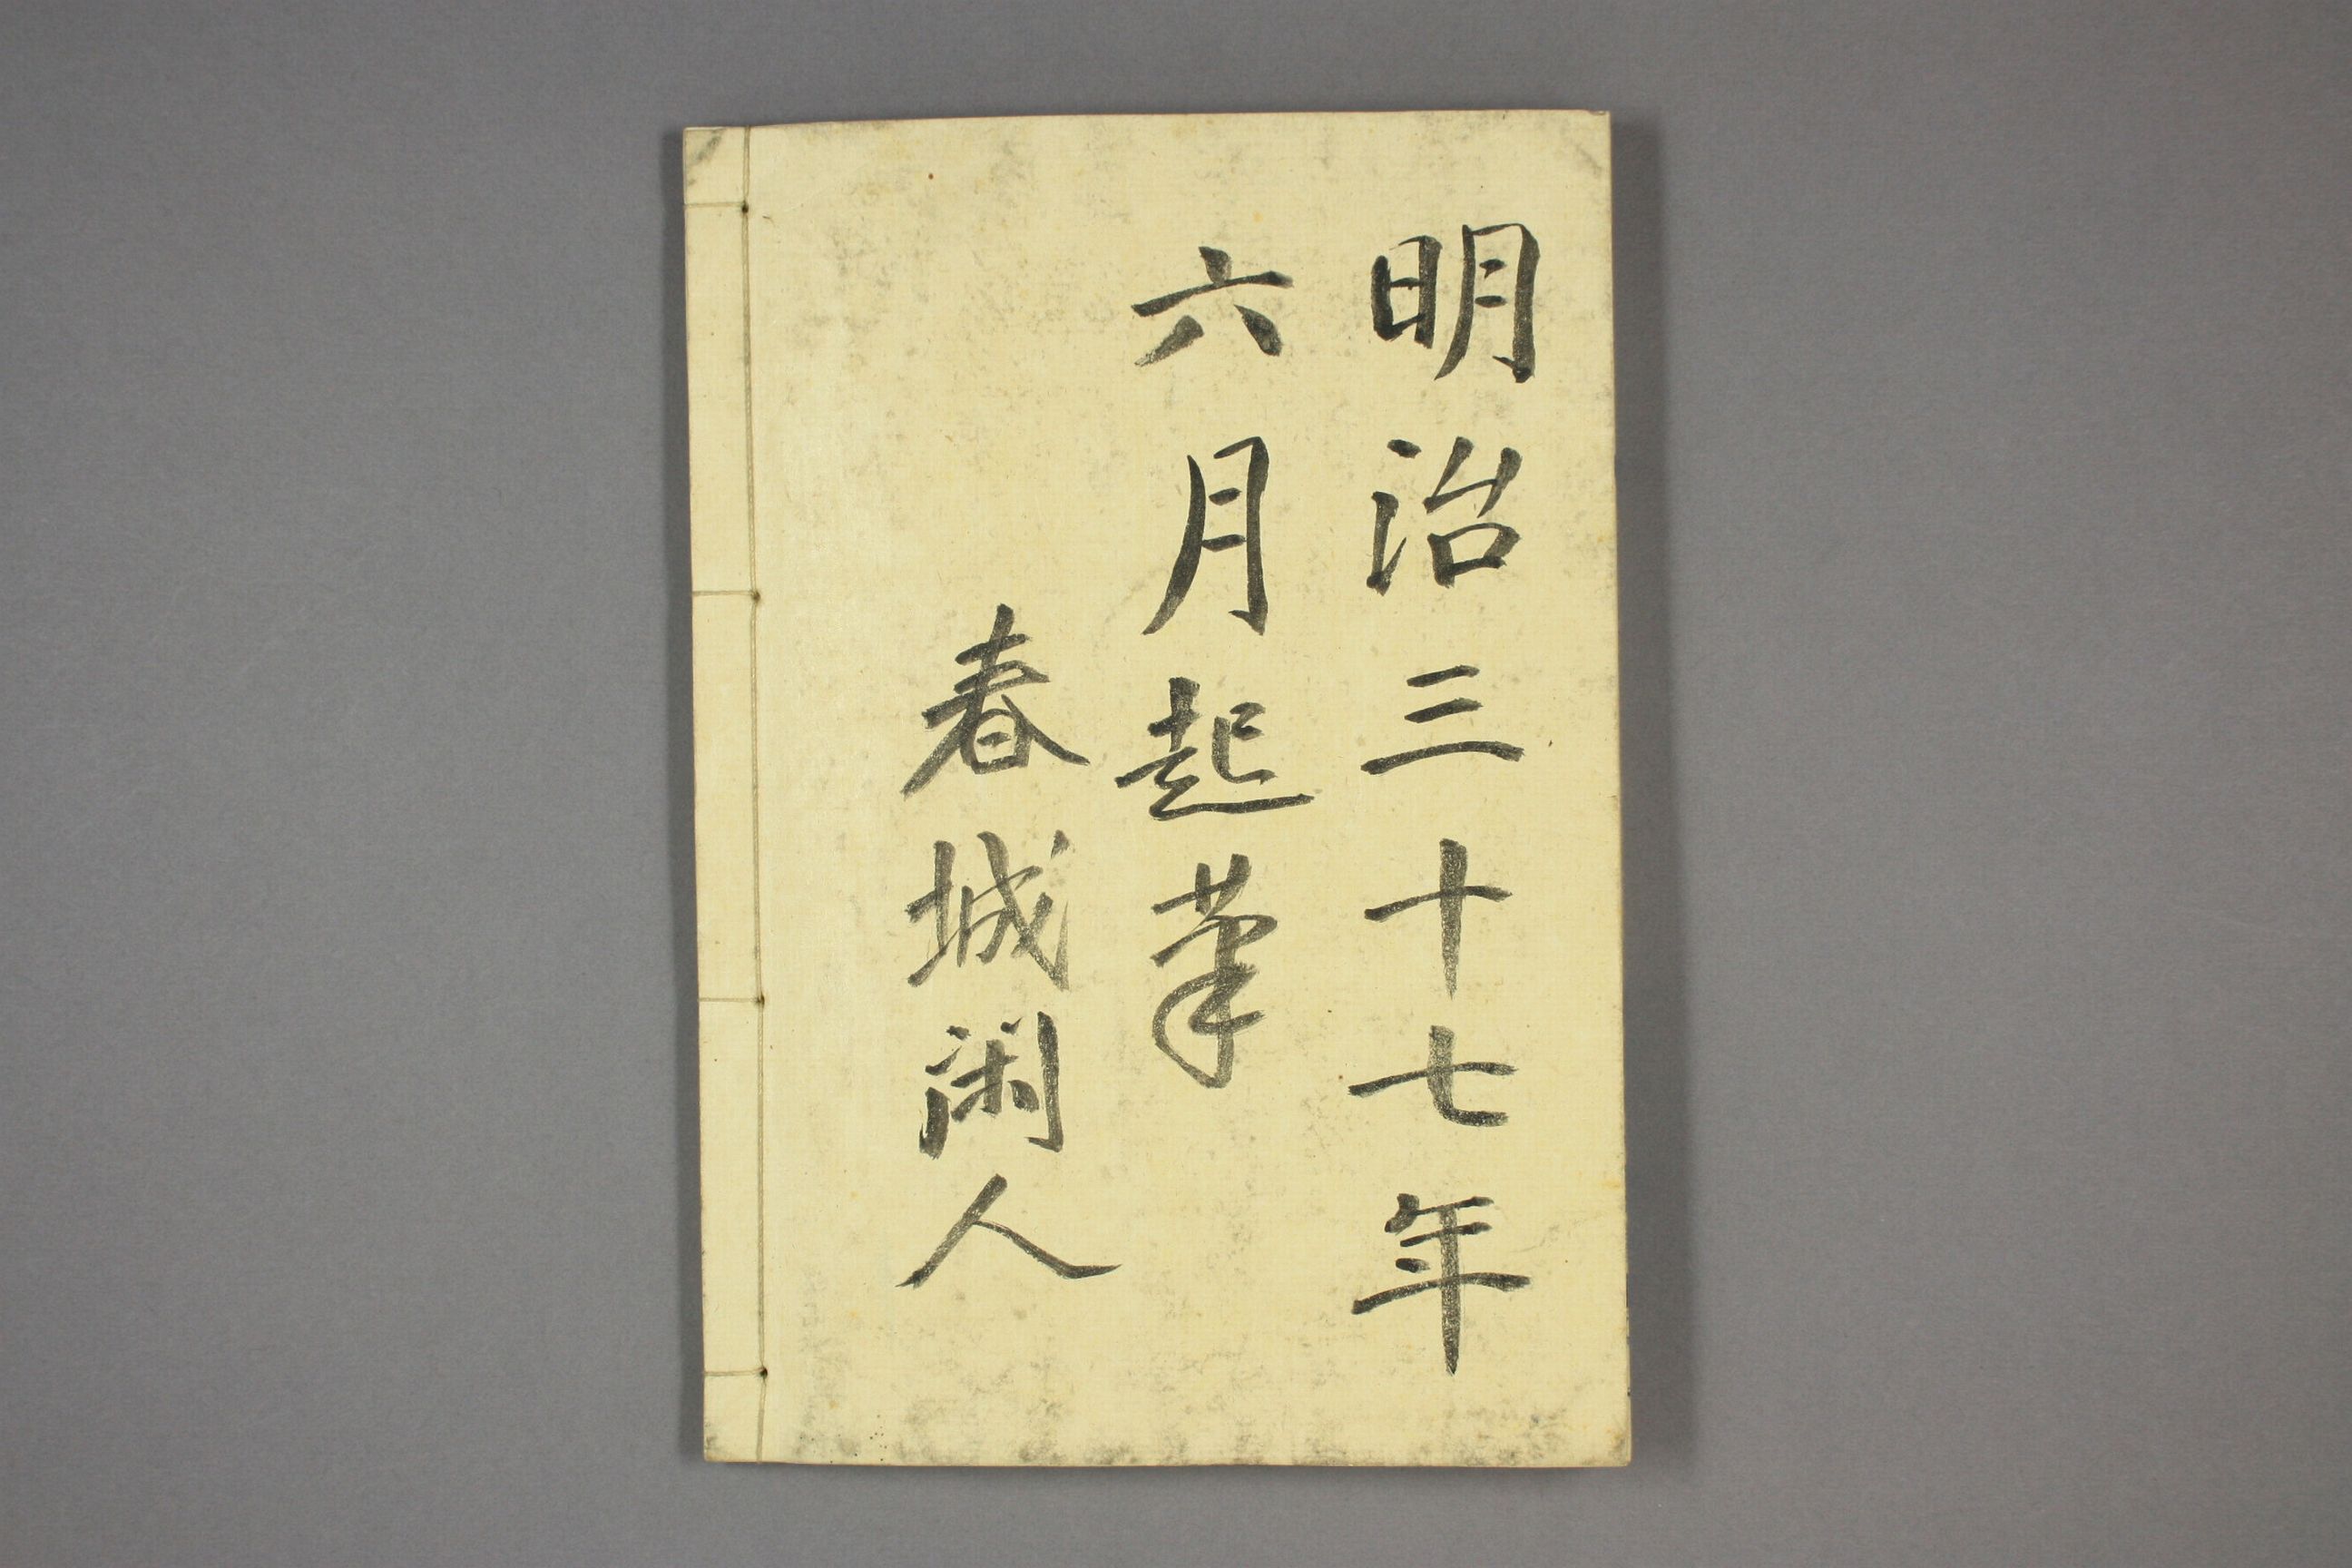 明治三十七年
六月起筆
春城閑人